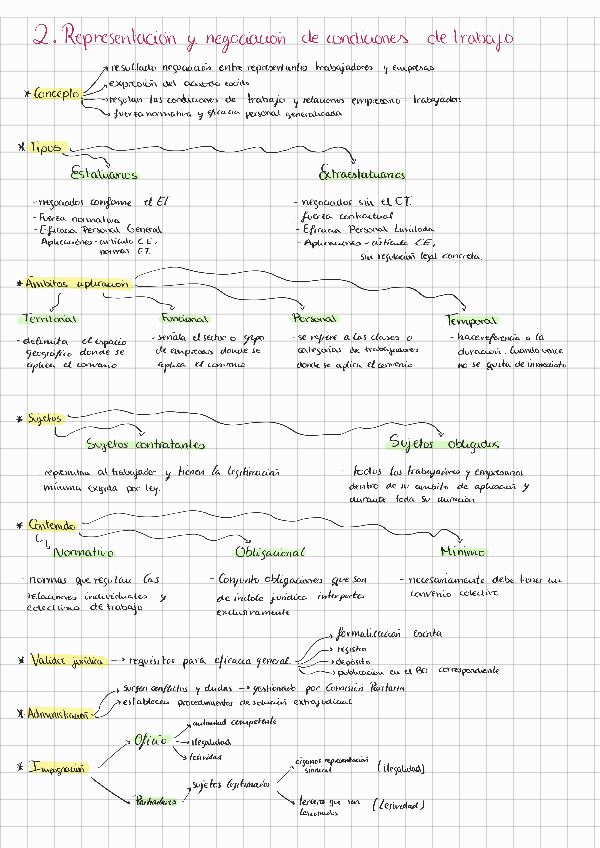 2. Representación y negociación de condiciones de trabajo
* Concepto
→ resultado negociación entre representantes trabajadores y empresas
→ expresión del acuerdo escrito
→ regulan las condiciones de trabajo y relaciones empresario - trabajador
→ fuerza normativa y eficacia personal generalizada
* Tipos
Estatuarios
- negociados conforme el ET
- Fuerza normativa
- Eficacia Personal General
Aplicaciones - artículo CE,
normas ET.
Extraestatuarios
- negociados sin el ET.
fuerza contractual
- Eficacia Personal Limitada
- Aplicaciones - artículo CE,
sin regulación legal concreta.
* Ámbitos aplicación
Territorial
- delimita el espacio
geográfico donde se
aplica el convenio
Funcional
- señala el sector o grupo
de empresas donde se
aplica el convenio
Personal
- se refiere a las clases o
categorías de trabajadores
donde se aplica el convenio
Temporal
- hace referencia a la
duración. Cuando vence
no se de inmediato
* Sujetos
Sujetos contratantes
- representan al trabajador y tienen la legitimación
mínima exigida por ley.
Sujetos obligados
- todos los trabajadores y empresarios
dentro de su ámbito de aplicación y
durante toda su duración
* Contenido
Normativo
- normas que regulan las
relaciones individuales y
colectivas de trabajo
Obligacional
- Conjunto obligaciones que son
de índole jurídica interpartes
exclusivamente
Mínimo
- necesariamente debe tener un
convenio colectivo
* Validez jurídica → requisitos para eficacia general
→ formalización escrita
→ registro
→ depósito
→ publicación en el BO correspondiente
* Administración
→ surgen conflictos y dudas → gestionado por Comisión Paritaria
→ establecen procedimientos de solución extrajudicial
* Impugnación
Oficio
→ autoridad competente
→ ilegalidad
→ lesividad
→ sujetos legitimarios
órganos representación
sindical
(ilegalidad)
terceros que son
lesionados
(lesividad)